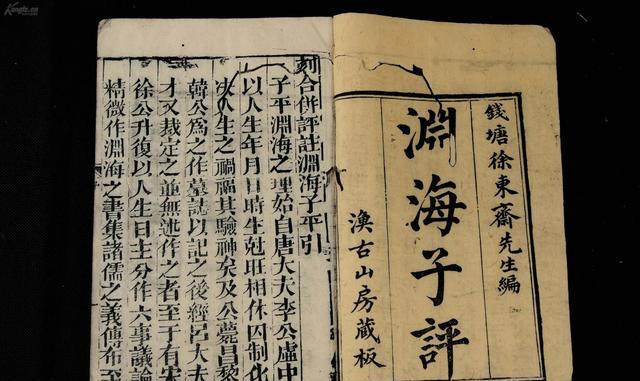 錢塘徐東齋先生編
淵海子評
古山房藏板
刻合併評註淵海子平引
子平淵海之理始自唐大夫李公虛中
以人生年月日時生尅旺相休囚制化
决人生之禍福其驗神矣及公薨昌黎
韓公爲之作墓誌以記之後經呂大夫
才又裁定之並無述作之者至于有宋
徐公升復以人生日主分作六事議論
精微作淵海之書集諸儒之義傳布至
Kongfz.cn